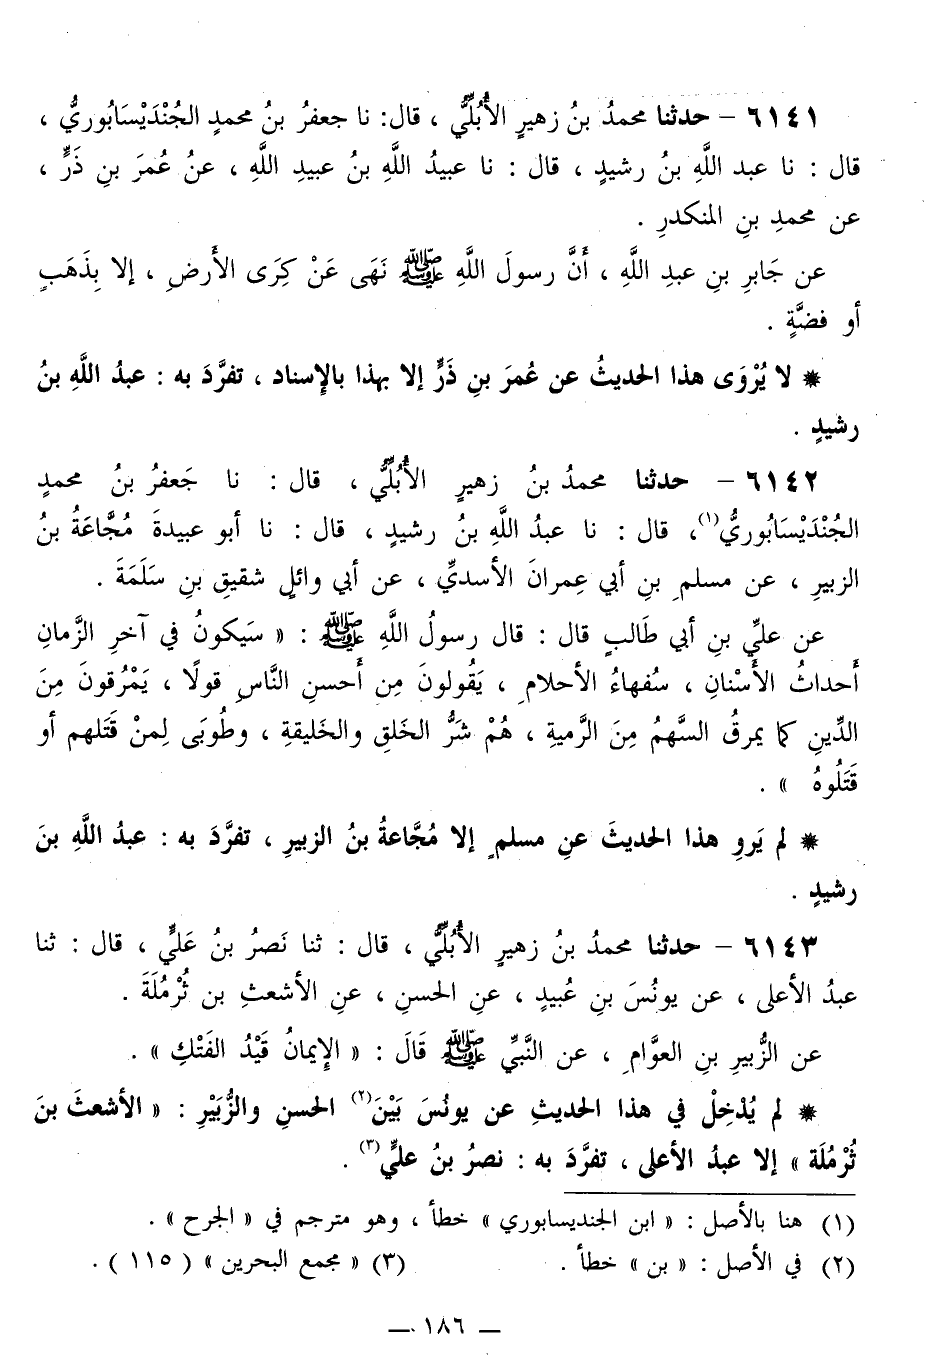 ٦١٤١ – حدثنا محمدُ بنُ زهيرٍ الأُبُلِّيُّ ، قال: نا جعفرُ بنُ محمدٍ الجُنْدَيْسَابُوريُّ ،
قال : نا عبد اللَّهِ بنُ رشيدٍ ، قال : نا عبيدُ اللَّهِ بنُ عبيدِ اللَّهِ ، عنْ عُمَرَ بنِ ذَرٍّ ،
عن محمدِ بنِ المنكدرِ .
عن جَابرِ بنِ عبدِ اللَّهِ ، أنَّ رسولَ اللَّهِ ﷺ نَهَى عَنْ كِرَى الأَرضِ ، إلا بِذَهَبٍ
أو فضَّةٍ .
* لا يُرْوَى هذا الحديثُ عن عُمرَ بنِ ذَرٍّ إلا بهذا بالإسناد ، تفرَّدَ به : عبدُ اللَّهِ بنُ
رشيدٍ .
٦١٤٢ – حدثنا محمدُ بنُ زهيرٍ الأُبُلِّيُّ ، قال : نا جَعفرُ بنُ محمدٍ
الجُنْدَيْسَابُوريُّ(١)، قال : نا عبدُ اللَّهِ بنُ رشيدٍ ، قال : نا أبو عبيدةَ مُجَّاعَةُ بنُ
الزبيرِ ، عن مسلمِ بنِ أبي عِمرانَ الأسديِّ ، عن أبي وائلٍ شقيقِ بنِ سَلَمَةَ .
عن عليِّ بنِ أبي طَالبٍ قال : قال رسولُ اللَّهِ ﷺ : « سَيكونُ في آخرِ الزَّمانِ
أَحداثُ الأَسْنانِ ، سُفهاءُ الأحلامِ ، يَقُولونَ مِن أَحسنِ النَّاسِ قولًا ، يَمْرُقونَ مِنَ
الدِّينِ كما يمرقُ السَّهمُ مِنَ الرَّميةِ ، هُمْ شَرُّ الخَلقِ والخَليقةِ ، وطُوبَى لِمنْ قَتَلهم أو
قَتَلُوهُ » .
* لم يَروِ هذا الحديثَ عنِ مسلمٍ إلا مُجَّاعةُ بنُ الزبيرِ ، تفرَّدَ به : عبدُ اللَّهِ بنَ
رشيدٍ .
٦١٤٣ – حدثنا محمدُ بنُ زهيرٍ الأُبُلِّيُّ ، قال : ثنا نَصرُ بنُ عَليٍّ ، قال : ثنا
عبدُ الأعلى ، عن يونُسَ بنِ عُبيدٍ ، عنِ الحسنِ ، عنِ الأشعثِ بن ثُرْمُلَةَ .
عن الزُّبيرِ بنِ العوَّامِ ، عن النَّبيِّ ﷺ قَالَ : « الإيمانُ قَيْدُ الفَتْكِ » .
* لم يُدْخِلْ في هذا الحديثِ عن يونُسَ بَيْنَ(٢) الحسنِ والزُّبَيْرِ : « الأشعثَ بنَ
ثُرْمُلَة » إلا عبدُ الأعلى ، تفرَّدَ به : نصرُ بنُ عليٍّ(٣) .
(١) هنا بالأصل : « ابن الجنديسابوري » خطأ ، وهو مترجم في « الجرح » .
(٢) في الأصل : « بن » خطأ . (٣) « مجمع البحرين » ( ١١٥ ) .
— ١٨٦ —